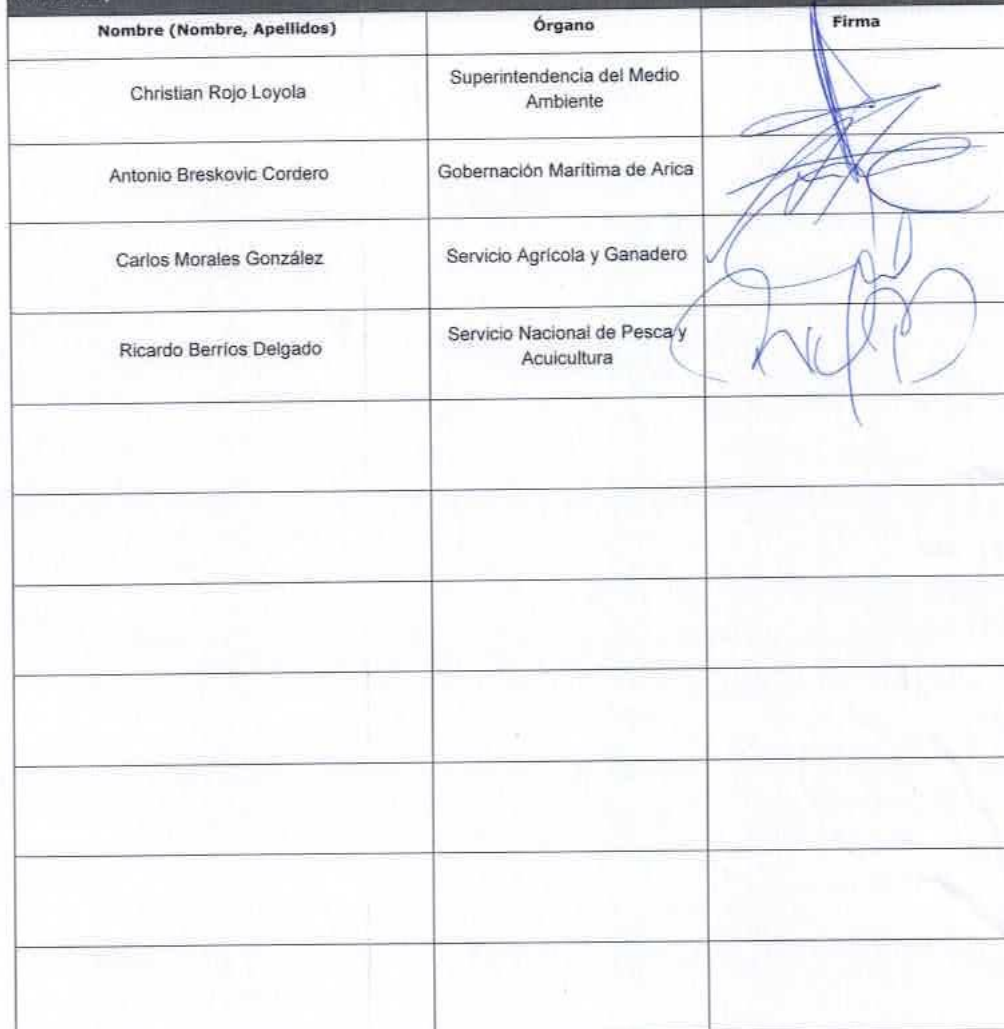 Nombre (Nombre, Apellidos) Órgano Firma
Christian Rojo Loyola Superintendencia del Medio
Ambiente
Antonio Breskovic Cordero Gobernación Marítima de Arica
Carlos Morales González Servicio Agrícola y Ganadero
Ricardo Berríos Delgado Servicio Nacional de Pesca y
Acuicultura